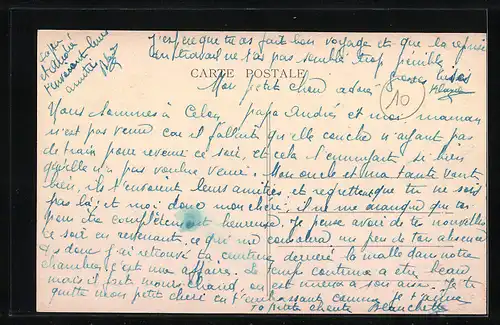 J'espère que tu as fait bon voyage et que la reprise
du travail ne t'as pas semblé trop pénible
CARTE POSTALE
10
Mon petit chou adoré
Nous sommes à papa André et moi, maman
n'est pas venue car il fallait qu'elle couche n'ayant pas
de train pour revenir ce soir, et cela l'ennuyait si bien
qu'elle n'a pas voulue venir. Mon oncle et ma tante vont
bien, ils t'envoient leurs amitiés et regrettent que tu ne sois
pas là; et moi donc mon chéri, il ne me manque que toi
pour être complètement heureuse. Je pense avoir de tes nouvelles
ce soir en revenant, ce qui me consolera un peu de ton absence
donc j'ai retrouvé ta ceinture derrière la malle dans notre
chambre, c'est une affaire. Le temps continue a être beau
mais il fait moins chaud, on est mieux a son aise. Je te
quitte mon petit chéri en t'embrassant comme je t'aime
Ta petite chérie Blanchette
leurs
amitiés